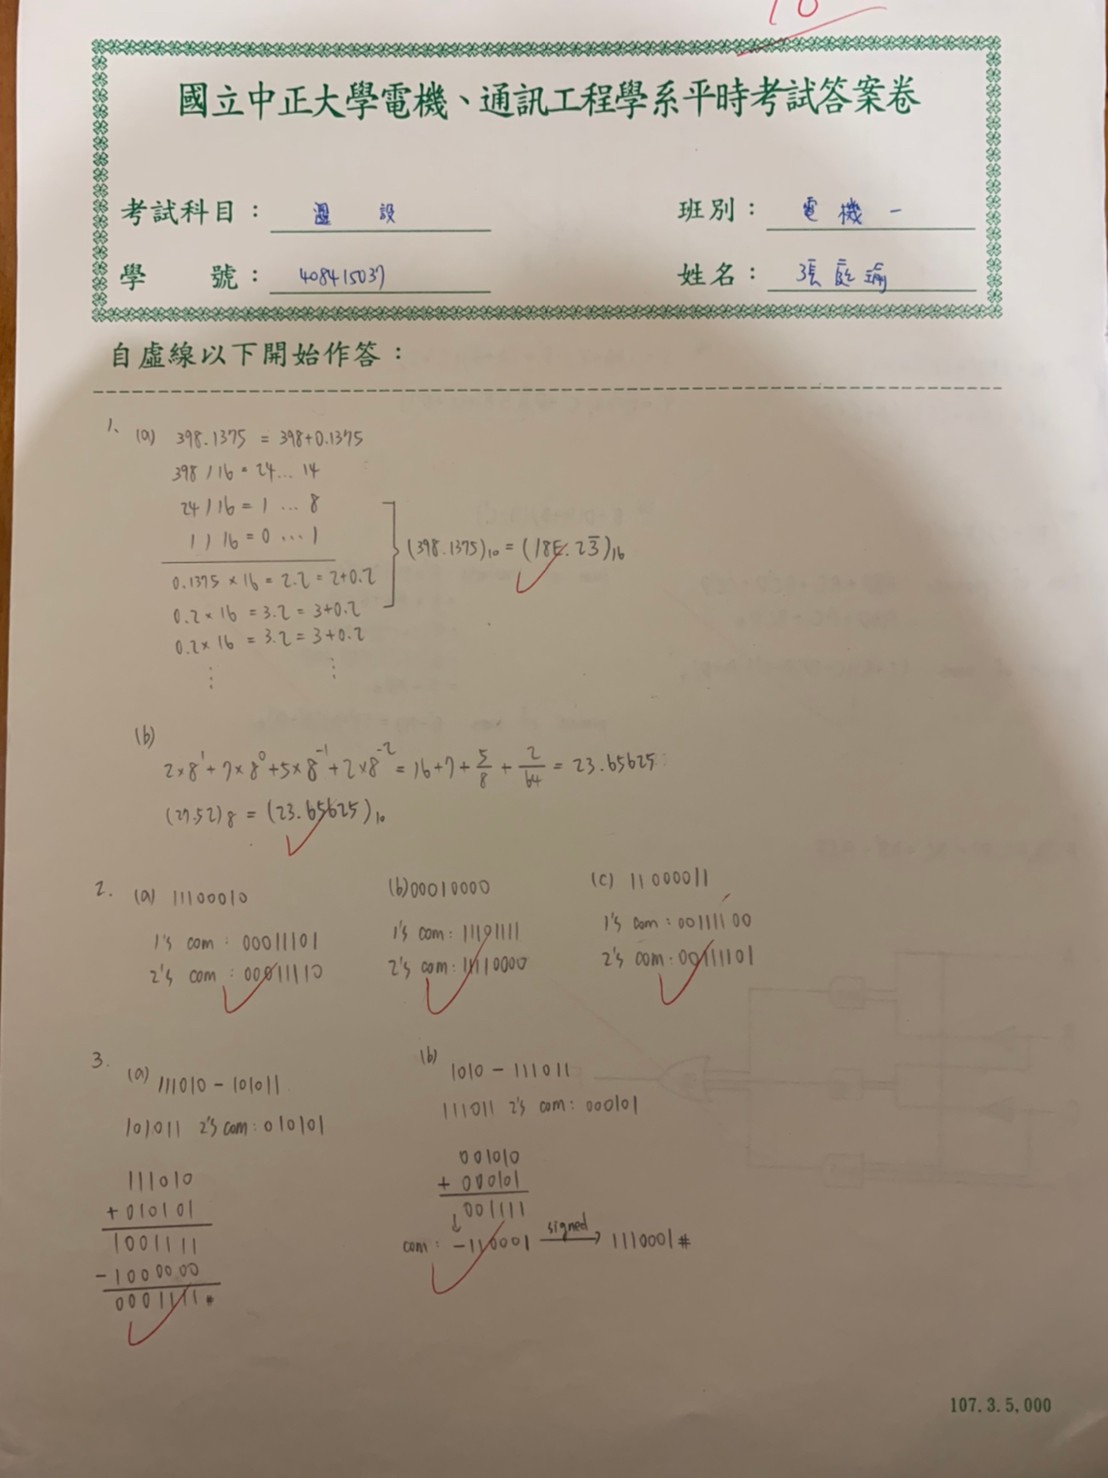 國立中正大學電機、通訊工程學系平時考試答案卷
考試科目： 邏 設 班別： 電機一
學 號： 408415037 姓名： 張庭瑜
自虛線以下開始作答：
1. (a) 398.1375 = 398+0.1375
398 / 16 = 24 ... 14
24 / 16 = 1 ... 8
1 / 16 = 0 ... 1
(398.1375)₁₀ = (18E.23̅)₁₆
0.1375 × 16 = 2.2 = 2+0.2
0.2 × 16 = 3.2 = 3+0.2
0.2 × 16 = 3.2 = 3+0.2
⋮ ⋮
(b)
2×8¹+7×8⁰+5×8⁻¹+2×8⁻² = 16+7+5/8+2/64 = 23.65625
(27.52)₈ = (23.65625)₁₀
2. (a) 11100010 (b) 00010000 (c) 11000011
1's com : 00011101 1's com : 11101111 1's com : 00111100
2's com : 00011110 2's com : 11110000 2's com : 00111101
3. (a) 111010 - 101011
101011 2's com : 010101
111010
+ 010101
1001111
- 1000000
0001111
(b)
1010 - 111011
111011 2's com : 000101
001010
+ 000101
001111
com : -110001 signed→ 1110001 #
107.3.5,000